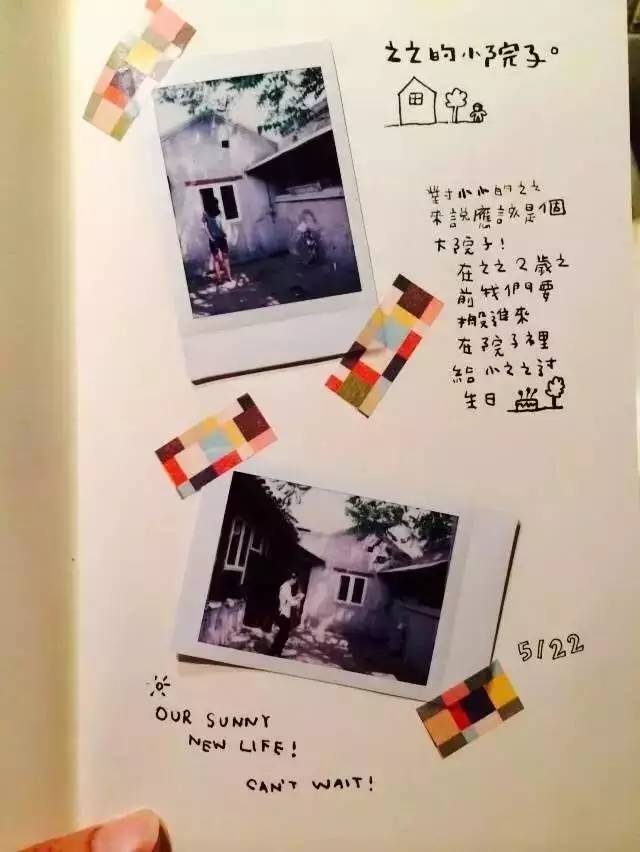 之之的小院子。
對小小的之之
來說應該是個
大院子!
在之之2歲之
前我們要
搬進來
在院子裡
給小之之討
生日
5/22
OUR SUNNY
NEW LIFE!
CAN'T WAIT!